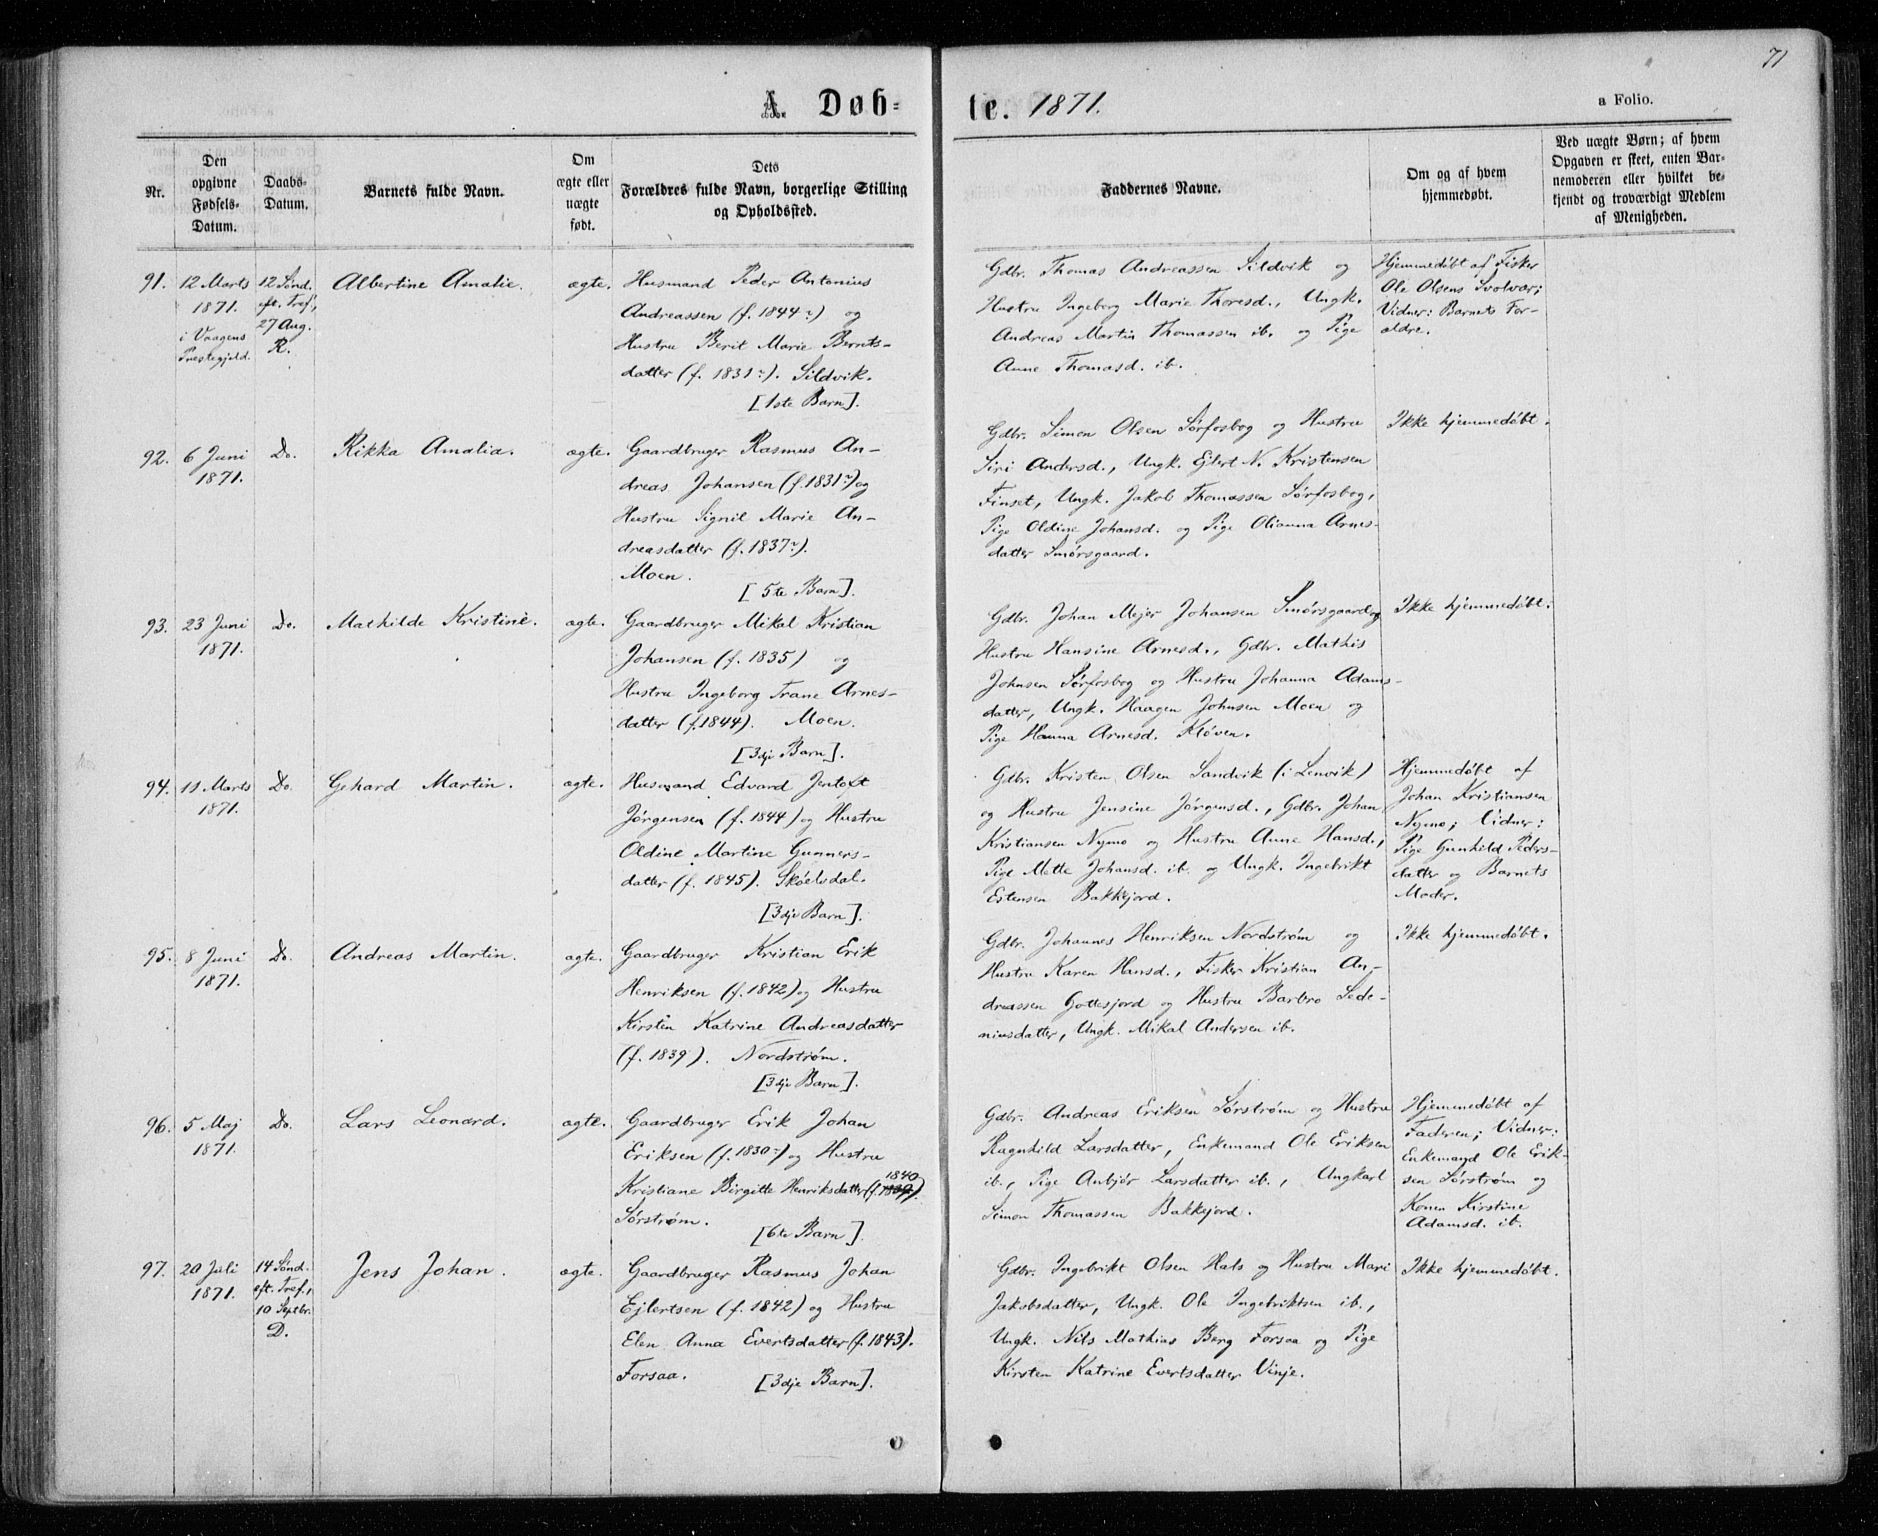 71
A. Døb=
te. 1871.
a Folio.
Nr.
Den
opgivne
Fødsels-
Datum.
Daabs-
Datum.
Barnets fulde Navn.
Om
ægte eller
uægte
født.
Dets
Forældres fulde Navn, borgerlige Stilling
og Opholdssted.
Faddernes Navne.
Om og af hvem
hjemmedøbt.
Ved uægte Børn; af hvem
Opgaven er skeet, enten Bar-
nemoderen eller hvilket be-
kjendt og troværdigt Medlem
af Menigheden.
91.
12 Marts
1871.
i Vaagens
Præstegjeld.
12 Sønd.
eft. Tref.,
27 Aug.
R.
Albertine Amalie.
ægte.
Husmand Peder Antonius
Andreassen (f. 1844?) og
Hustru Berit Marie Bernts-
datter (f. 1831?). Sildvik.
[1ste Barn].
Gdbr. Thomas Andreassen Sildvik og
Hustru Ingeborg Marie Thoresd., Ungk.
Andreas Martin Thomassen ib. og Pige
Anne Thomasd. ib.
Hjemmedøbt af Fisker
Ole Olsens Svolvær;
Vidner: Barnets For-
ældre.
92.
6 Juni
1871.
Do.
Rikka Amalia.
ægte.
Gaardbruger Rasmus An-
dreas Johansen (f. 1831?) og
Hustru Signil Marie An-
dreasdatter (f. 1837?).
Moen.
[5te Barn].
Gdbr. Simon Olsen Sørfosbog og Hustru
Siri Andersd., Ungk. Ejlert N. Kristensen
Finset, Ungk. Jakob Thomassen Sørfosbog,
Pige Oldine Johansd. og Pige Olianna Arnes-
datter Smørsgaard.
Ikke hjemmedøbt.
93.
23 Juni
1871.
Do.
Mathilde Kristine.
ægte.
Gaardbruger Mikal Kristian
Johansen (f. 1835) og
Hustru Ingeborg Trane Arnes-
datter (f. 1844). Moen.
[3dje Barn].
Gdbr. Johan Mejer Johansen Smørsgaard og
Hustru Hansine Arnesd., Gdbr. Mathis
Johnsen Sørfosbog og Hustru Johanna Adams-
datter, Ungk. Haagen Johnsen Moen og
Pige Hanna Arnesd. Kløven.
Ikke hjemmedøbt.
94.
11 Marts
1871.
Do.
Gehard Martin.
ægte.
Husmand Edvard Jentoft
Jørgensen (f. 1844) og Hustru
Oldine Martine Gunners-
datter (f. 1845). Skøelvdal.
[3dje Barn].
Gdbr. Kristen Olsen Sandvik (i Lenvik)
og Hustru Jensine Jørgensd., Gdbr. Johan
Kristiansen Nymo og Hustru Anne Hansd.,
Pige Mette Johansd. ib. og Ungk. Ingebrikt
Estensen Bakkejord.
Hjemmedøbt af
Johan Kristiansen
Nymo; Vidner:
Pige Gunhild Peders-
datter og Barnets
Moder.
95.
8 Juni
1871.
Do.
Andreas Martin.
ægte.
Gaardbruger Kristian Erik
Henriksen (f. 1842) og Hustru
Kirsten Katrine Andreasdatter
(f. 1839). Nordstrøm.
[3dje Barn].
Gdbr. Johannes Henriksen Nordstrøm og
Hustru Karen Hansd., Fisker Kristian An-
dreassen Gottesjord og Hustru Barbro Sede-
niusdatter, Ungk. Mikal Andersen ib.
Ikke hjemmedøbt.
96.
5 Maj
1871.
Do.
Lars Leonard.
ægte.
Gaardbruger Erik Johan
Eriksen (f. 1830?) og Hustru
1840
Kristiane Birgitte Henriksdatter (f. 1839).
Sørstrøm.
[6te Barn].
Gdbr. Andreas Eriksen Sørstrøm og Hustru
Ragnhild Larsdatter, Enkemand Ole Eriksen
ib., Pige Anbjør Larsdatter ib., Ungkarl
Simon Thomassen Bakkejord.
Hjemmedøbt af
Faderen; Vidner:
Enkemand Ole Erik-
sen Sørstrøm og
Konen Kirstine
Adamsd. ib.
97.
20 Juli
1871.
14 Sønd.
eft. Tref.,
10 Septbr.
D.
Jens Johan.
ægte.
Gaardbruger Rasmus Johan
Ejlertsen (f. 1842) og Hustru
Elen Anna Evertsdatter (f. 1843).
Forsaa.
[3dje Barn].
Gdbr. Ingebrikt Olsen Hals og Hustru Mari
Jakobsdatter, Ungk. Ole Ingebriktsen ib.,
Ungk. Nils Mathias Berg Forsaa og Pige
Kirsten Katrine Evertsdatter Vinje.
Ikke hjemmedøbt.